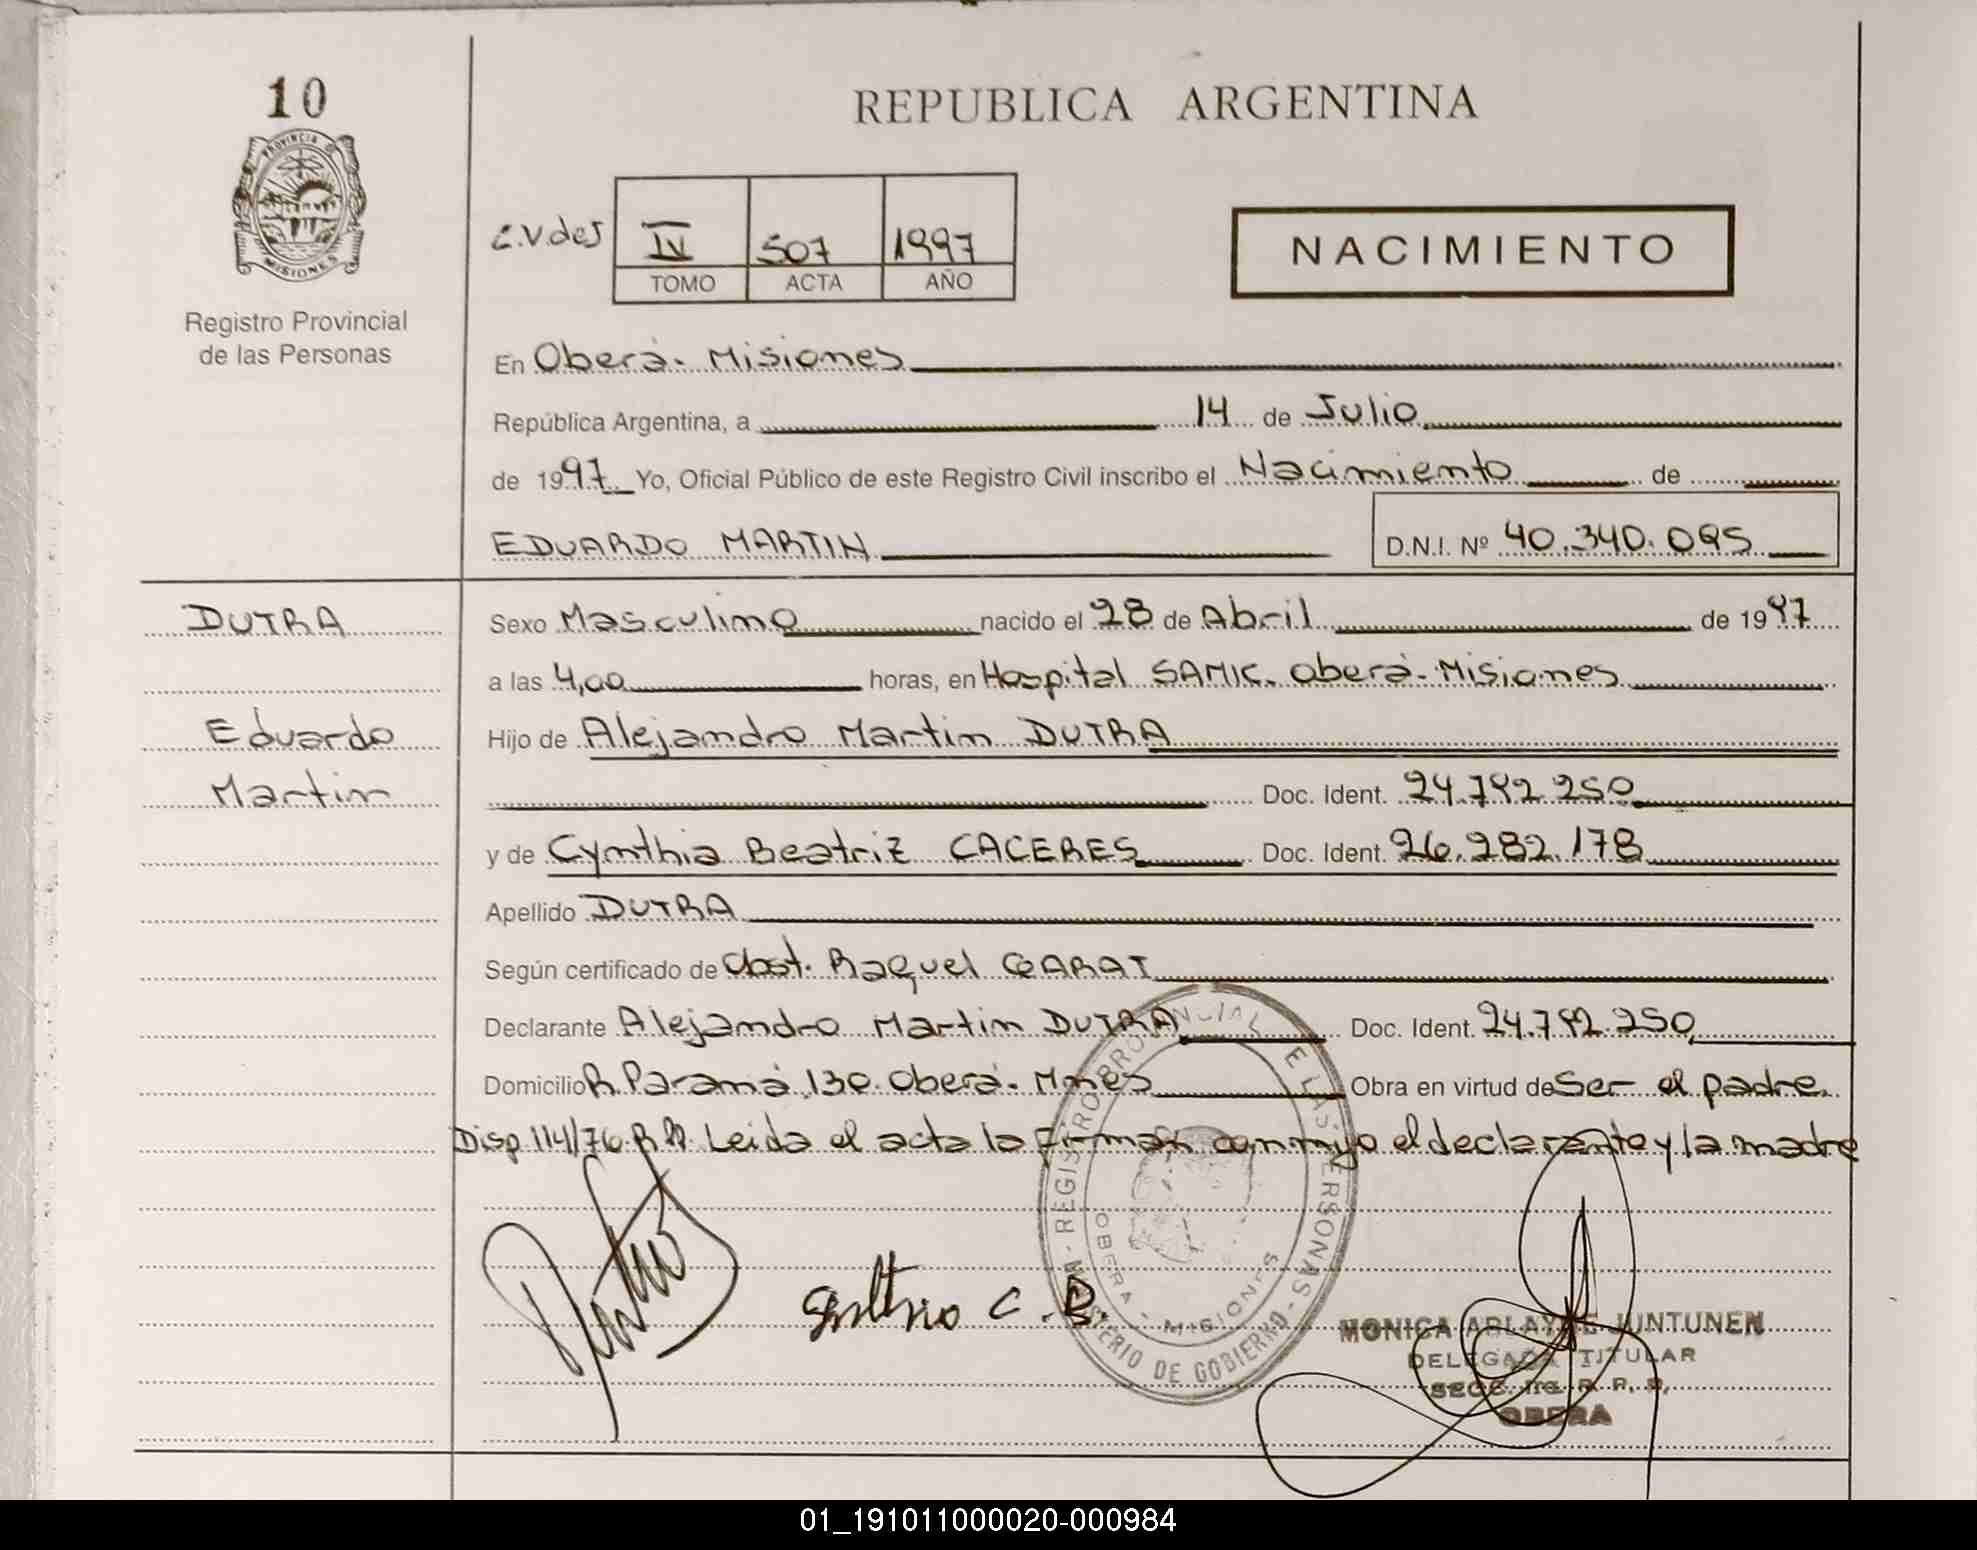 10
PROVINCIA DE
MISIONES
Registro Provincial
de las Personas
REPUBLICA ARGENTINA
C.V.deJ IV 507 1997
TOMO ACTA AÑO
NACIMIENTO
En Oberá - Misiones
República Argentina, a 14 de Julio
de 1997 Yo, Oficial Público de este Registro Civil inscribo el Nacimiento de
EDUARDO MARTIN D.N.I. Nº 40.340.095
DUTRA
Eduardo
Martin
Sexo Masculino nacido el 28 de Abril de 1997
a las 4,00 horas, en Hospital SAMIC. Oberá - Misiones
Hijo de Alejandro Martin DUTRA
Doc. Ident. 24.792.250
y de Cynthia Beatriz CACERES Doc. Ident. 26.282.178
Apellido DUTRA
Según certificado de Obst. Raquel GARAT
Declarante Alejandro Martin DUTRA Doc. Ident. 24.792.250
Domicilio R. Paraná 130. Oberá - Mnes Obra en virtud de Ser el padre.
Disp 114/76 R.P. Leida el acta la Firman conmigo el declarante y la madre
REGISTRO PROVINCIAL DE LAS PERSONAS - MINISTERIO DE GOBIERNO -
OBERA - MISIONES
C. B.
MONICA ARLAYNE JUNTUNEN
DELEGADA TITULAR
SECC. R. P. P.
OBERA
01_191011000020-000984